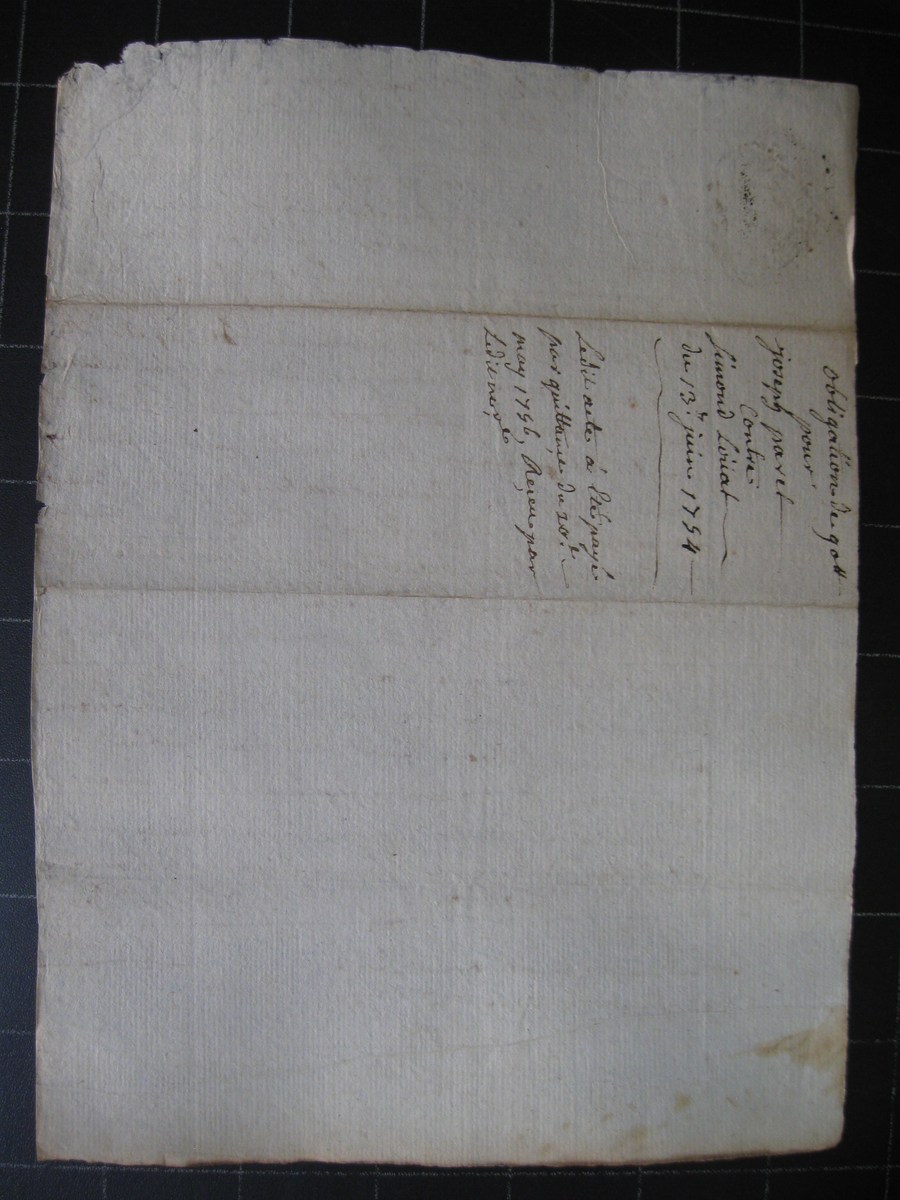 obligation de 90 tt
pour
joseph paret
Contre
Simond Loriat
du 13e juin 1754
Ledit acte à Eté payé
par quittance du 20e
may 1756, Receu par
Ledit